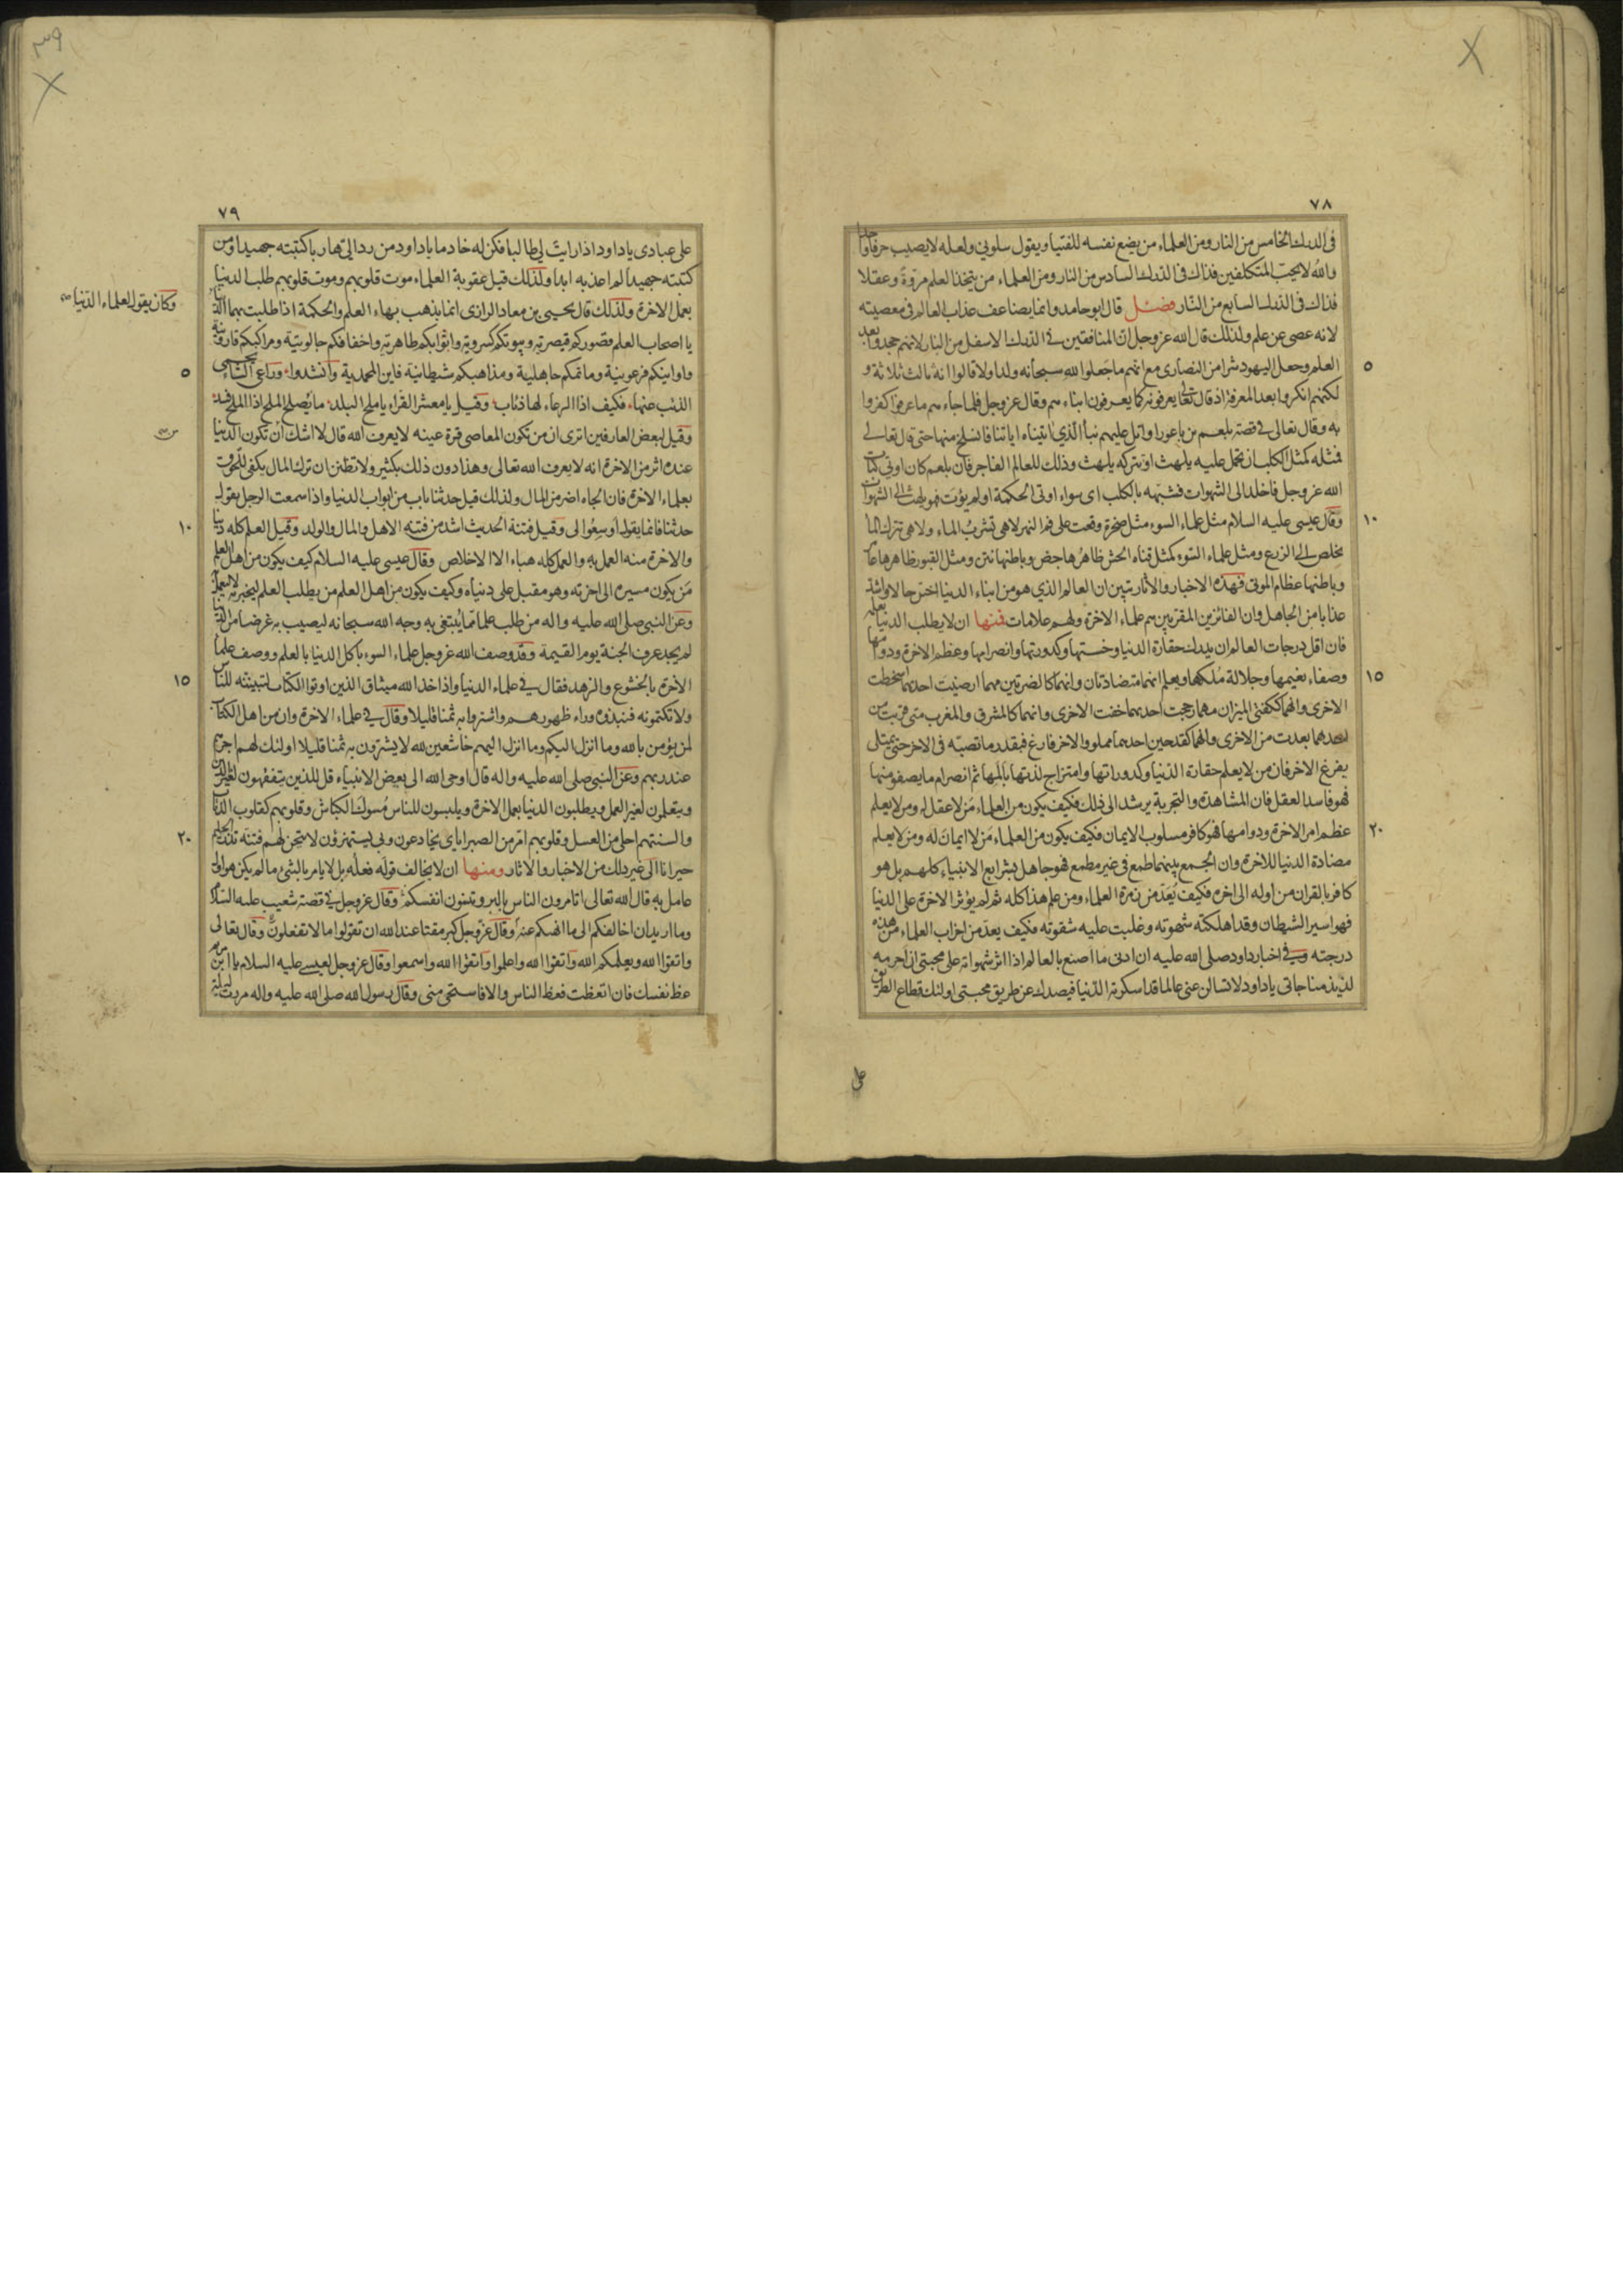 ٧٨
فى الدرك الخامس من النار ومن العلماء من يضع نفسه للفتيا ويقول سلونى ولعله لا يصيب حرفا واحدا
والله لا يحبّ المتكلفين فذاك فى الدرك السادس من النار ومن العلماء من يتخذ العلم مروّة وعقلا
فذاك فى الدرك السابع من النّار فصل قال ابو حامد وانما يضاعف عذاب العالم فى معصيته
لانه عصى عن علم ولذلك قال الله عز وجل انّ المنافقين فى الدرك الاسفل من النار لانهم جحدوا بعد
٥
العلم وجعل اليهود شرا من النصارى مع انهم ما جعلوا لله سبحانه ولدا ولا قالوا انه ثالث ثلاثة و
لكنهم انكروا بعد المعرفة اذ قال تعالى يعرفونه كما يعرفون ابناءهم وقال عز وجل فلما جاءهم ما عرفوا كفروا
به وقال تعالى فى قصّة بلعم بن باعورا واتل عليهم نبأ الّذي اتيناه اياتنا فانسلخ منها حتى قال تعالى
فمثله كمثل الكلب ان تحمل عليه يلهث او تتركه يلهث وذلك للعالم الفاجر فان بلعم كان اوتى كتاب
الله عز وجل فاخلد الى الشهوات فشبّهه بالكلب اى سواء اوتى الحكمة او لم يؤت فهو يلهث الى الشهوات
١٠
وقال عيسى عليه السلام مثل علماء السوء مثل صخرة وقعت على فم النهر لا هى تشرب الماء ولا هى تترك الما
يخلص الى الزرع ومثل علماء السوء كمثل قناة الحش ظاهرها جص وباطنها نتن ومثل القبور ظاهرها عامر
وباطنها عظام الموتى فهذه الاخبار والاثار تبين ان العالم الذي هو من ابناء الدنيا اخسّ حالا واشدّ
عذابا من الجاهل وان الفائزين المقربين هم علماء الاخرة ولهم علامات فمنها ان لا يطلب الدنيا بعلمه
فان اقل درجات العالم ان يدرك حقارة الدنيا وخستها وكدورتها وانصرامها وعظم الاخرة ودوامها
١٥
وصفاء نعيمها وجلالة مُلكها ويعلم انهما متضادتان وانهما كالضرتين مهما ارضيت احديهما اسخطت
الاخرى وانهما ككفتى الميزان مهما رجحت احديهما خفت الاخرى وانهما كالمشرق والمغرب متى قربت من
احدهما بعدت من الاخرى وانهما كقدحين احدهما مملو والاخر فارغ فبقدر ما تصبّه فى الاخر حتى يمتلى
يفرغ الاخر فان من لا يعلم حقارة الدّنيا وكدوراتها وامتزاج لذتها بألمها ثم انصرام ما يصفو منها
فهو فاسد العقل فان المشاهدة والتجربة يرشد الى ذلك فكيف يكون من العلماء من لا عقل له ومن لا يعلم
٢٠
عظم امر الاخرة ودوامها فهو كافر مسلوب الايمان فكيف يكون من العلماء من لا ايمان له ومن لا يعلم
مضادة الدنيا للاخرة وان الجمع بينهما طمع فى غير مطمع فهو جاهل بشرايع الانبياء كلهم بل هو
كافر بالقران من اوله الى اخره فكيف يُعَدّ من زمرة العلماء ومن علم هذا كله ثم لم يؤثر الاخرة على الدنيا
فهو اسير الشيطان وقد اهلكته شهوته وغلبت عليه شقوته فكيف يعدّ من احزاب العلماء من هذه
درجته وفى اخبار داود صلى الله عليه ان ادنى ما اصنع بالعالم اذا اثر شهواته على محبتى ان احرمه
لذيذ مناجاتى ياداود لا تسألن عنى عالما قد اسكرته الدّنيا فيصدك عن طريق محبتى اولئك قطاع الطريق
على
٣٩
٧٩
على عبادى ياداود اذا رايت لى طالبا فكن له خادما ياداود من رد الىّ هاربا كتبته جهبدا ومن
كتبته جهبدا لم اعذبه ابدا ولذلك قيل عقوبة العلماء موت قلوبهم وموت قلوبهم طلب الدنيا
بعمل الاخرة ولذلك قال يحيى بن معاد الرازى انما يذهب بهاء العلم والحكمة اذا طلبت بهما الدنيا
وكان يقول لعلماء الدّنيا صح
يا اصحاب العلم قصوركم قيصرية وبيوتكم كسروية واثوابكم طاهرية واخفافكم جالوتية ومراكبكم قارونية
٥
واوانيكم فرعونية وماتمكم جاهلية ومذاهبكم شيطانية فاين المحمدية وانشدوا وراعى الشاة يحمى
الذئب عنها فكيف اذا الرعاء لها ذئاب وقيل يا معشر القراء يا ملح البلد ما يُصلح الملح اذا الملح فسد
وقيل لبعض العارفين اترى ان من تكون المعاصى قرة عينه لا يعرف الله قال لا اشك ان من تكون الدنيا
عنده اثر من الاخرة انه لا يعرف الله تعالى وهذا دون ذلك بكثير ولا تظنن ان ترك المال يكفى للّحوق
بعلماء الاخرة فان الجاه اضر من المال ولذلك قيل حدثنا باب من ابواب الدنيا واذا سمعت الرجل يقول
١٠
حدثنا فانما يقول اوسِعُوا لى وقيل فتنة الحديث اشد من فتنه الاهل والمال والولد وقيل العلم كله دنيا
والاخرة منه العمل به والعمل كله هباء الا الاخلاص وقال عيسى عليه السلام كيف يكون من اهل العلم
مَن يكون مسيره الى اخرته وهو مقبل على دنياه وكيف يكون من اهل العلم من يطلب العلم ليخبر به لا ليعمل
وعن النبى صلى الله عليه واله من طلب علما مّما يُبتغى به وجه الله سبحانه ليصيب به غرضا من الدنيا
لم يجد عرف الجنة يوم القيمة وقد وصف الله عز وجل علماء السوء باكل الدنيا بالعلم ووصف علماء
١٥
الاخرة بالخشوع والزهد فقال فى علماء الدنيا واذ اخذ الله ميثاق الذين اوتوا الكتاب لتبيننه للناس
ولا تكتمونه فنبذوه وراء ظهورهم واشتروا به ثمنا قليلا وقال فى علماء الاخرة وان من اهل الكتاب
لمن يؤمن بالله وما انزل اليكم وما انزل اليهم خاشعين لله لا يشترون به ثمنا قليلا اولئك لهم اجرهم
عند ربهم وعن النبى صلى الله عليه واله قال اوحى الله الى بعض الانبياء قل للذين يتفقهون لغير الدين
ويتعلمون لغير العمل ويطلبون الدنيا بعمل الاخرة ويلبسون للناس مُسوك الكباش وقلوبهم كقلوب الذئاب
٢٠
والسنتهم احلى من العسل وقلوبهم امرّ من الصبر اياى يخادعون وبى يستهزؤن لاتيحن لهم فتنة تذر الحليم
حيرانا الى غير ذلك من الاخبار والاثار ومنها ان لا يخالف قوله فعله بل لا يامر بالشئ ما لم يكن هو اول
عامل به قال الله تعالى اتامرون الناس بالبر وتنسون انفسكم وقال عز وجل فى قصة شعيب عليه السلام
وما اريد ان اخالفكم الى ما انهيكم عنه وقال عز وجل كبر مقتا عند الله ان تقولوا ما لا تفعلون وقال تعالى
واتقوا الله ويعلمكم الله واتقوا الله واعلموا واتقوا الله واسمعوا وقال عز وجل لعيسى عليه السلام يا ابن مريم
عظ نفسك فان اتعظت فعظ الناس والا فاستحى منى وقال رسول الله صلى الله عليه واله مررت ليلة